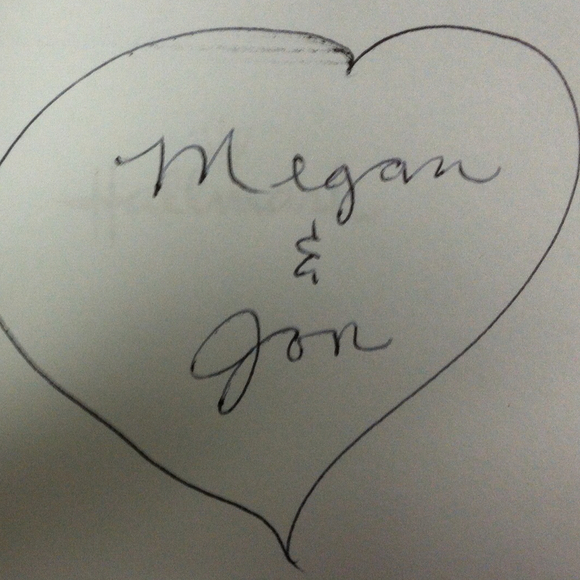 Megan
&
Jon